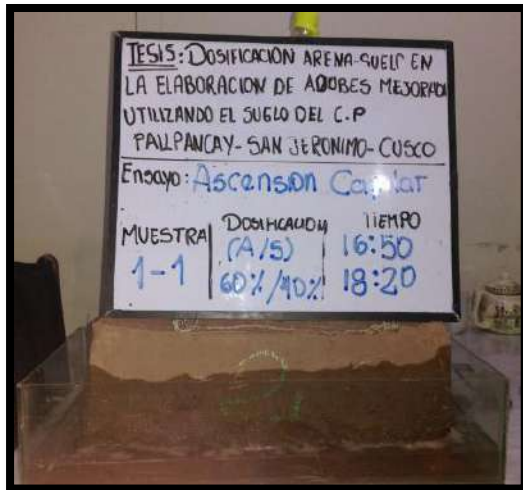 TESIS: DOSIFICACION ARENA-SUELO EN
LA ELABORACION DE ADOBES MEJORADO
UTILIZANDO EL SUELO DEL C.P
PALLPANCAY- SAN JERONIMO- CUSCO
Ensayo: Ascension Capilar
MUESTRA
1-1
DOSIFICACION
(A/S)
60%/40%
TIEMPO
16:50
18:20